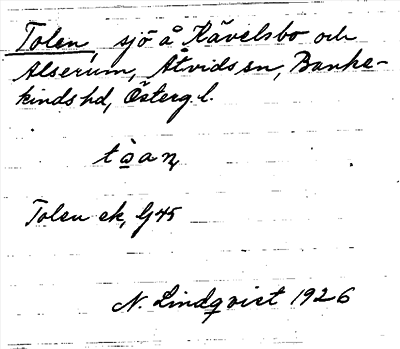 Tolen, sjö å Kävelsbo och
Alserum, Åtvids sn, Banke-
kinds hd, Österg. l.
Tolen ek, G45
N. Lindqvist 1926